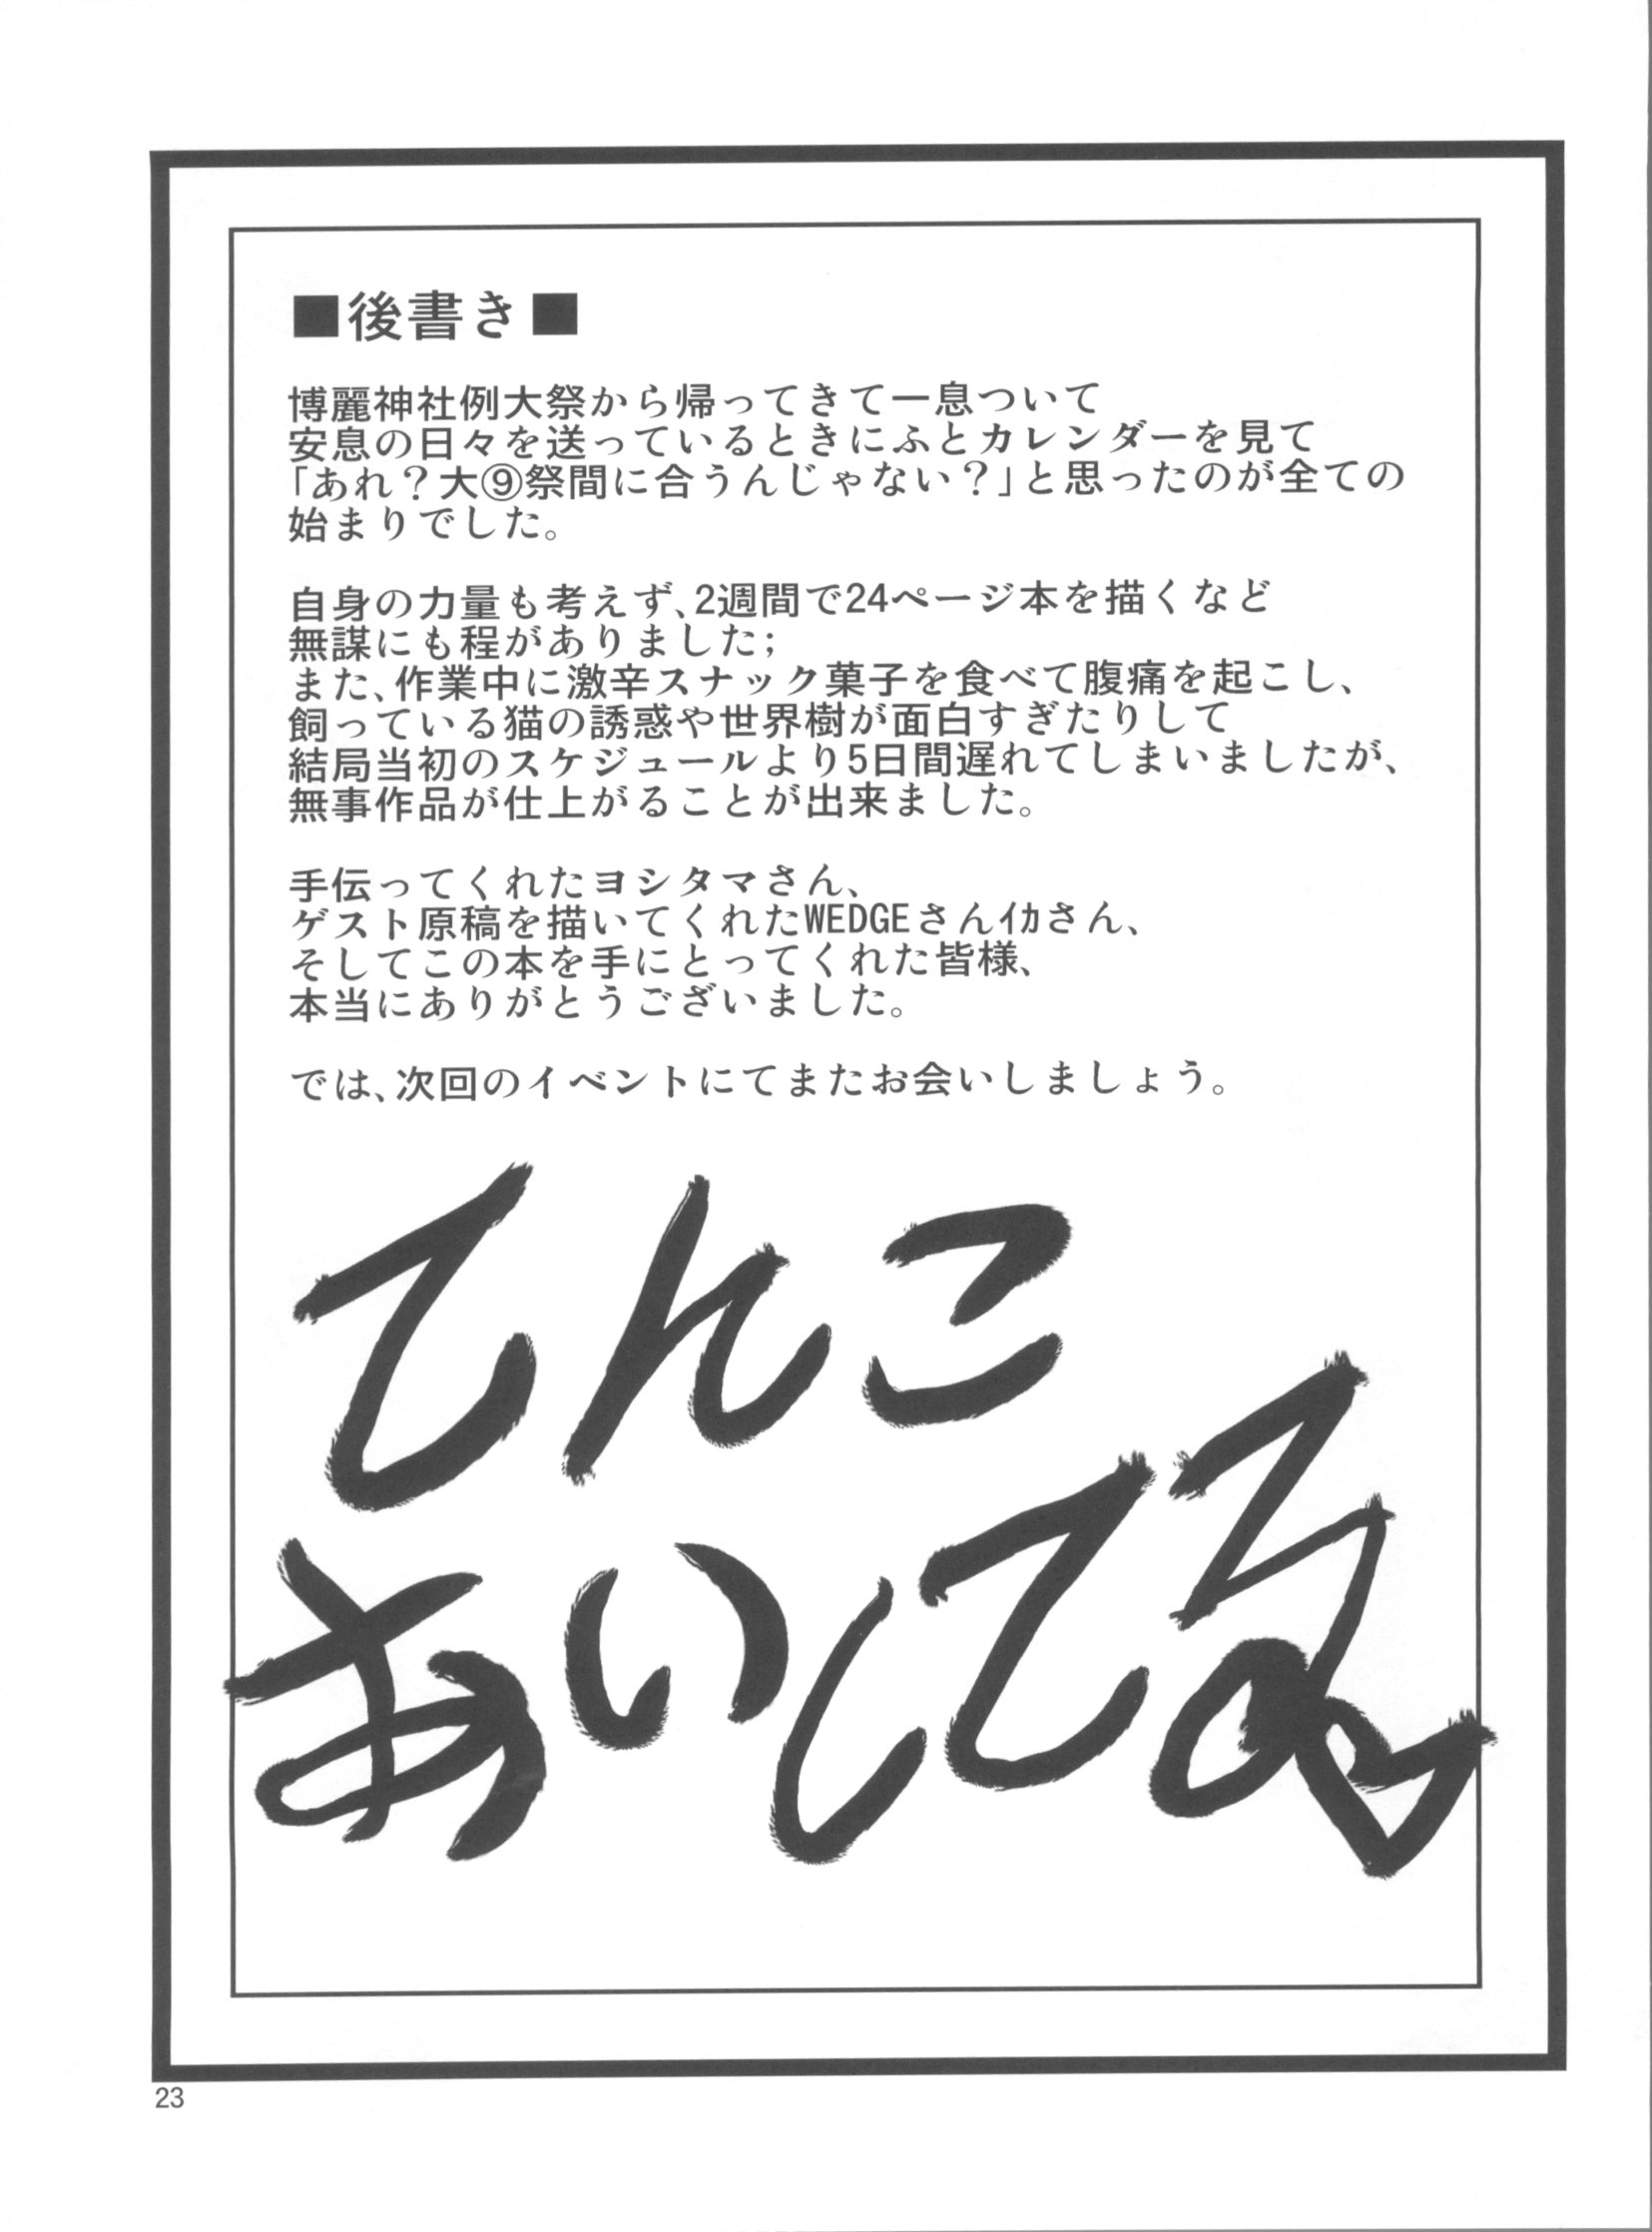 ■後書き■
博麗神社例大祭から帰ってきて一息ついて
安息の日々を送っているときにふとカレンダーを見て
「あれ？大⑨祭間に合うんじゃない？」と思ったのが全ての
始まりでした。
自身の力量も考えず、2週間で24ページ本を描くなど
無謀にも程がありました；
また、作業中に激辛スナック菓子を食べて腹痛を起こし、
飼っている猫の誘惑や世界樹が面白すぎたりして
結局当初のスケジュールより5日間遅れてしまいましたが、
無事作品が仕上がることが出来ました。
手伝ってくれたヨシタマさん、
ゲスト原稿を描いてくれたWEDGEさんｲｶさん、
そしてこの本を手にとってくれた皆様、
本当にありがとうございました。
では、次回のイベントにてまたお会いしましょう。
てんこ
あいしてる
23